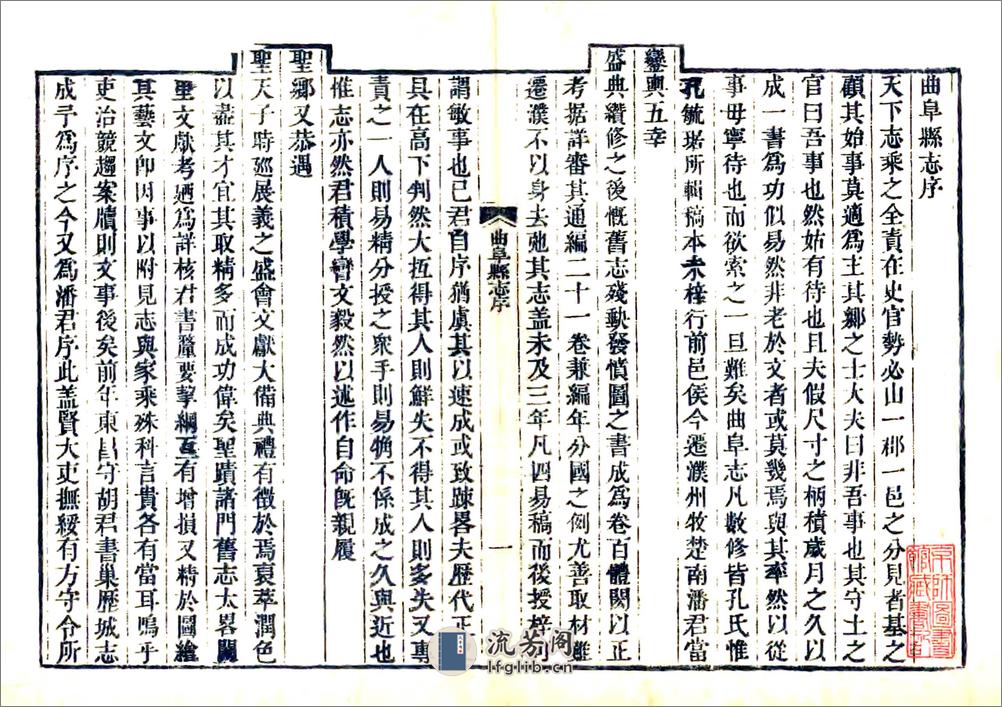 曲阜縣志序
天下志乘之全責在史官勢必由一郡一邑之分見者基之
顧其始事莫適為主其鄉之士大夫曰非吾事也其守土之
官曰吾事也然姑有待也且夫假尺寸之柄積歲月之久以
成一書為功似易然非老於文者或莫幾焉與其率然以從
事毋寧待也而欲索之一旦難矣曲阜志凡數修皆孔氏惟
孔毓琚所輯稿本未梓行前邑侯今遷濮州牧楚南潘君當
鑾輿五幸
盛典纘修之後慨舊志殘缺發憤圖之書成為卷百體閎以正
考据詳審其通編二十一卷兼編年分國之例尤善取材雖
遷濮不以身去弛其志蓋未及三年凡四易稿而後授梓
謂敏事也已君自序猶虞其以速成或致疎畧夫歷代正
具在高下判然大抵得其人則鮮失不得其人則多失又專
責之一人則易精分授之衆手則易䧳不係成之久與近也
惟志亦然君積學嗜文毅然以述作自命旣親履
聖鄉又恭遇
聖天子時巡展義之盛會文獻大備典禮有徵於焉裒萃潤色
以盡其才宜其取精多而成功偉矣聖蹟諸門舊志太畧闕
里文獻考廼為詳核君書釐要挈綱互有增損又精於圖繪
其藝文卽因事以附見志與家乘殊科言貴各有當耳嗚乎
吏治競趨案牘則文事後矣前年東昌守胡君書巢歷城志
成予為序之今又為潘君序此蓋賢大吏撫綏有方守令所
曲阜縣志序
一
京師圖書
館藏書印
流芳阁
lfglib.cn